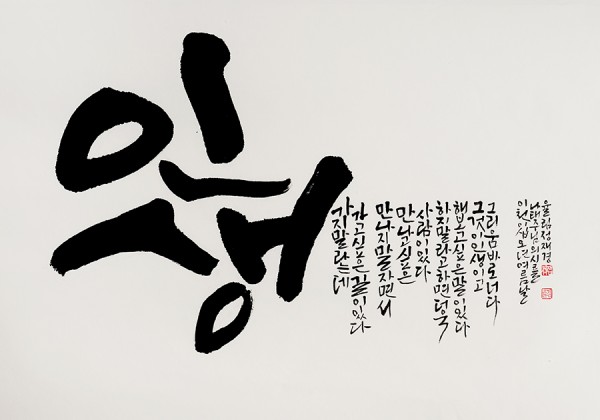 인생
가지말라는데
가고싶은길이있다
만나지말자면서
만나고싶은
사람이있다
하지말라고하면더욱
해보고싶은말이있다
그것이인생이고
그리움바로너다
이천십오년여름날
나태주님의시를
율림정재경